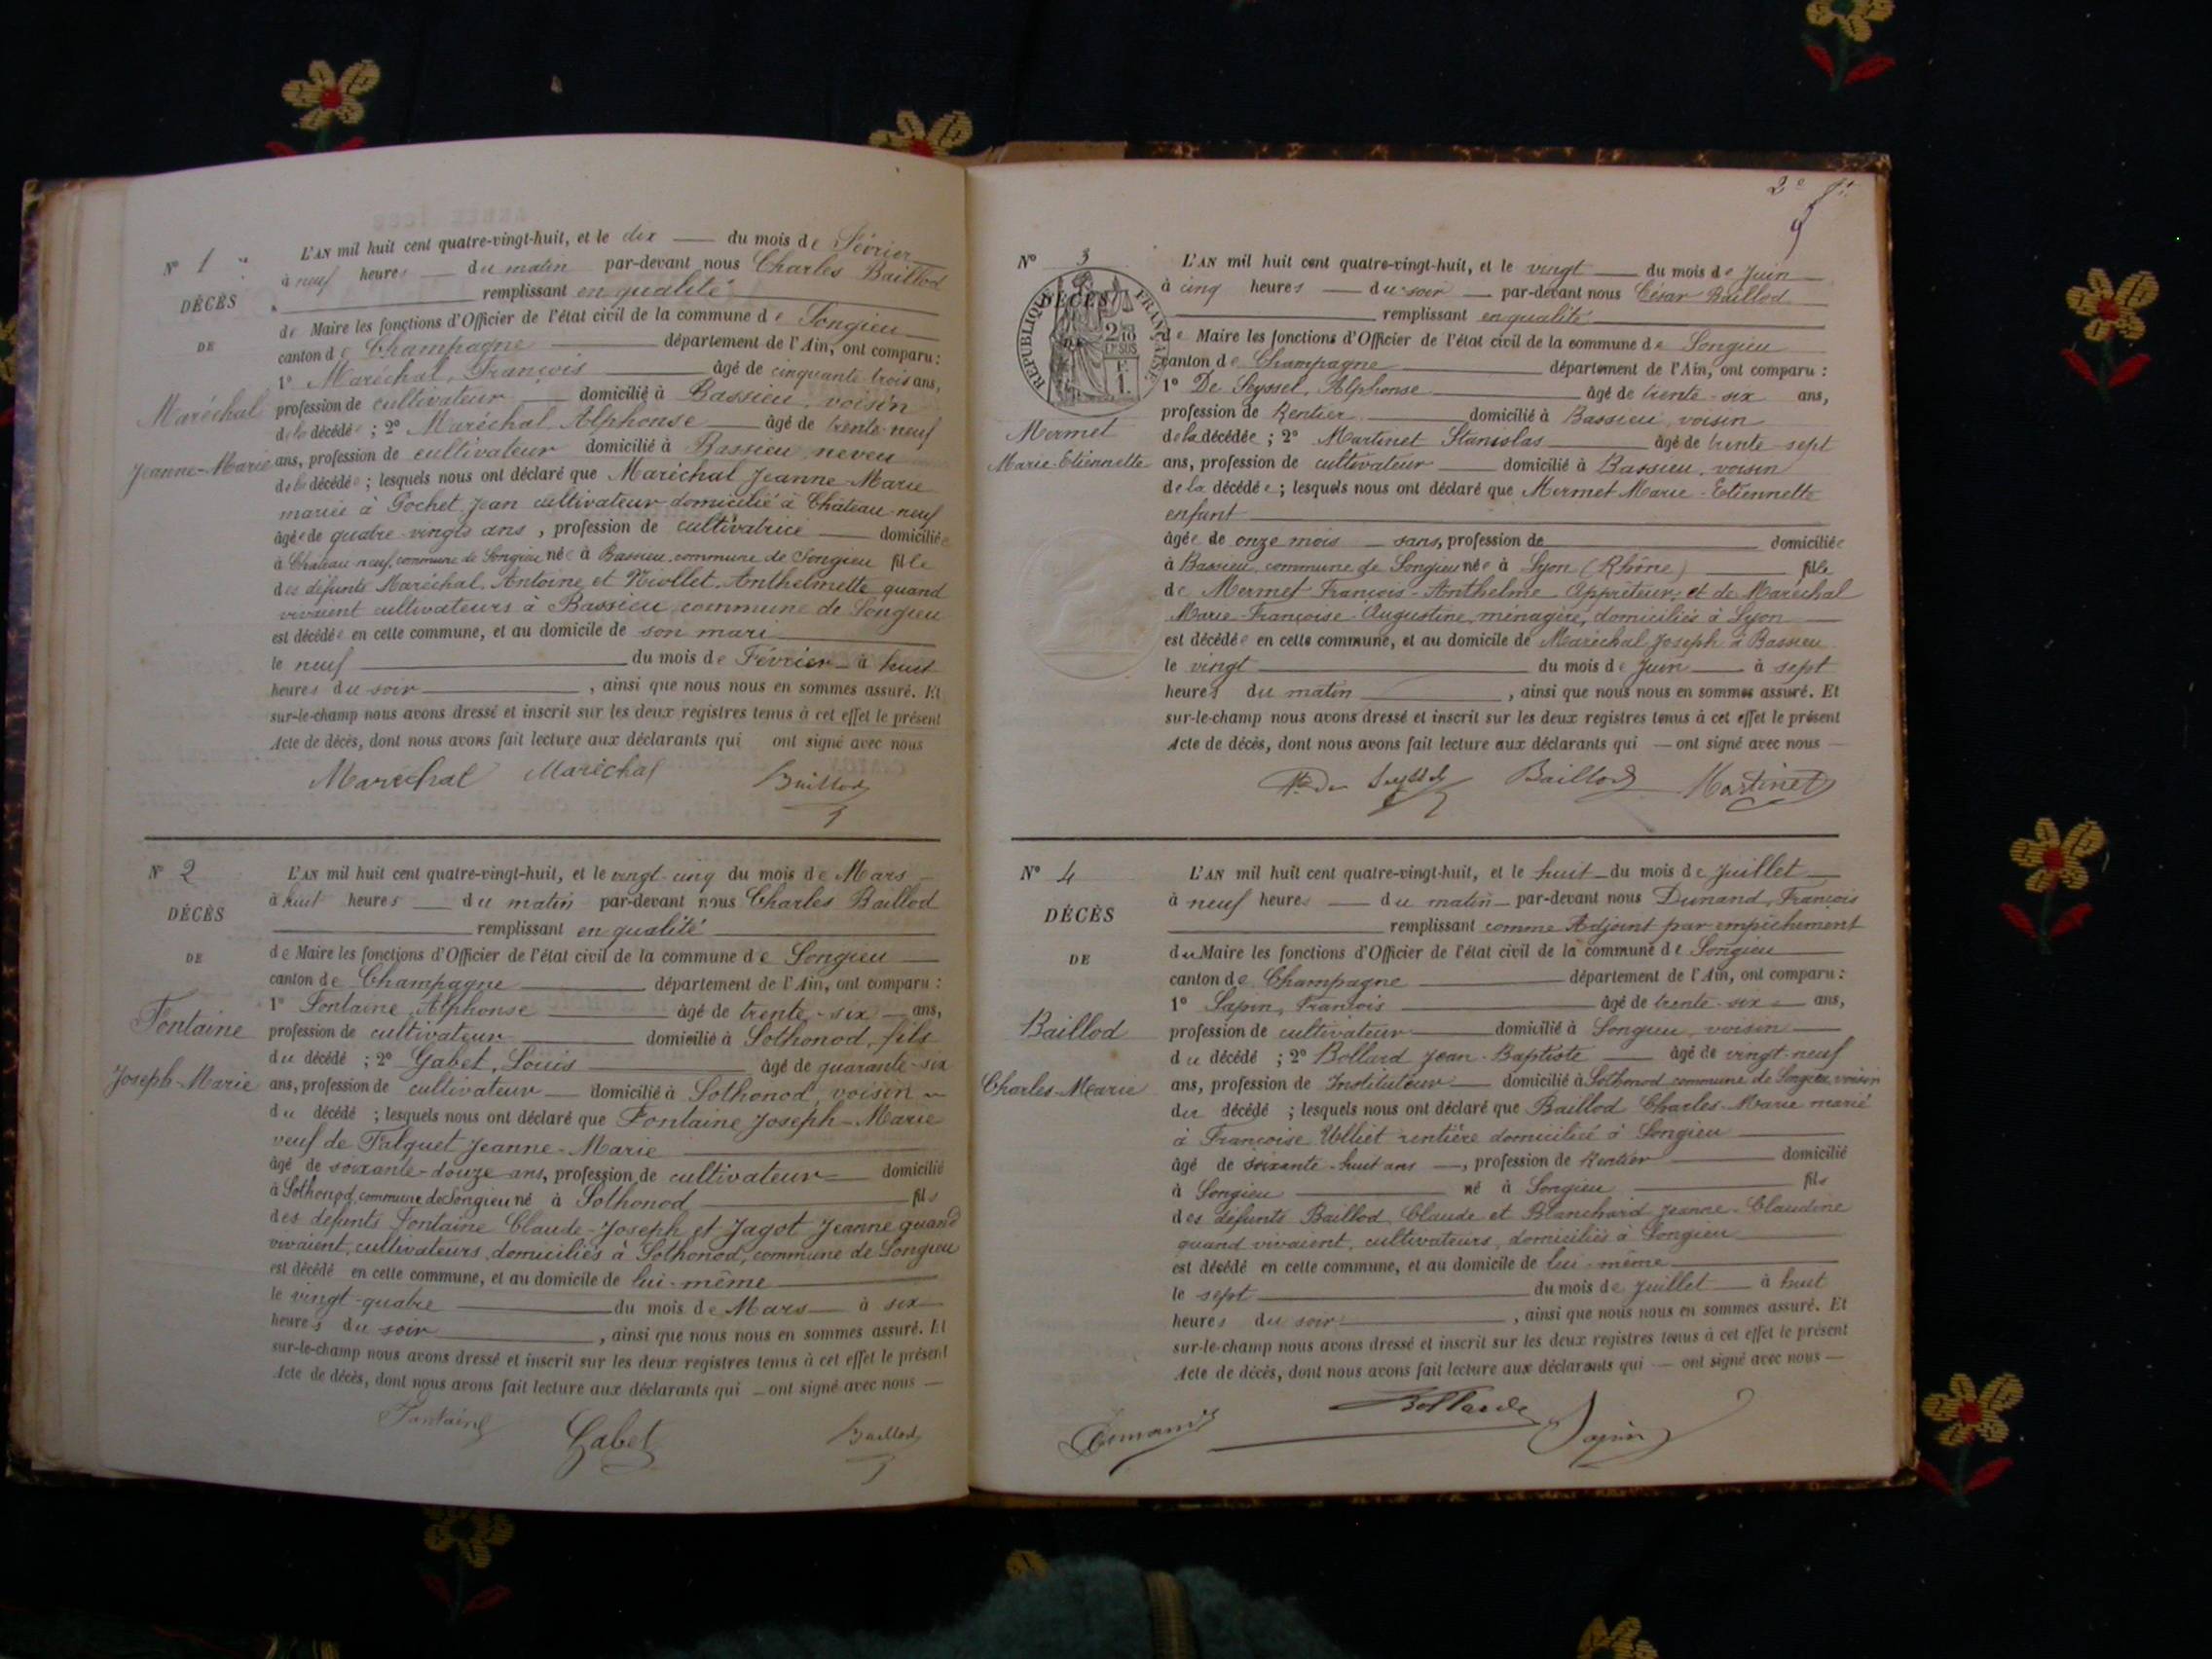 N° 1
DÉCÈS
DE
Maréchal
Jeanne-Marie
L'AN mil huit cent quatre-vingt-huit, et le dix du mois de Février
à neuf heures du matin par-devant nous Charles Baillod
remplissant en qualité
de Maire les fonctions d'Officier de l'état civil de la commune de Songieu
canton de Champagne département de l'Ain, ont comparu :
1° Maréchal, François âgé de cinquante trois ans,
profession de cultivateur domicilié à Bassieu, voisin
de la décédée ; 2° Maréchal, Alphonse âgé de trente-neuf
ans, profession de cultivateur domicilié à Bassieu, neveu
de la décédée ; lesquels nous ont déclaré que Maréchal Jeanne-Marie
mariée à Gochet, Jean cultivateur domicilié à Château-neuf
âgée de quatre-vingts ans, profession de cultivatrice domiciliée
à Château-neuf, commune de Songieu née à Bassieu, commune de Songieu fille
des défunts Maréchal, Antoine et Niollet, Anthelmette quand
vivaient cultivateurs à Bassieu commune de Songieu
est décédée en cette commune, et au domicile de son mari
le neuf du mois de Février à huit
heures du soir, ainsi que nous nous en sommes assuré. Et
sur-le-champ nous avons dressé et inscrit sur les deux registres tenus à cet effet le présent
Acte de décès, dont nous avons fait lecture aux déclarants qui ont signé avec nous
Maréchal Maréchal Baillod
N° 2
DÉCÈS
DE
Fontaine
Joseph-Marie
L'AN mil huit cent quatre-vingt-huit, et le vingt-cinq du mois de Mars
à huit heures du matin par-devant nous Charles Baillod
remplissant en qualité
de Maire les fonctions d'Officier de l'état civil de la commune de Songieu
canton de Champagne département de l'Ain, ont comparu :
1° Fontaine, Alphonse âgé de trente-six ans,
profession de cultivateur domicilié à Sothonod, fils
du décédé ; 2° Gabet, Louis âgé de quarante-six
ans, profession de cultivateur domicilié à Sothonod, voisin
du décédé ; lesquels nous ont déclaré que Fontaine Joseph-Marie
veuf de Falquet Jeanne-Marie
âgé de soixante-douze ans, profession de cultivateur domicilié
à Sothonod, commune de Songieu né à Sothonod fils
des défunts Fontaine Claude-Joseph et Jagot Jeanne quand
vivaient, cultivateurs, domiciliés à Sothonod, commune de Songieu
est décédé en cette commune, et au domicile de lui-même
le vingt-quatre du mois de Mars à six
heures du soir, ainsi que nous nous en sommes assuré. Et
sur-le-champ nous avons dressé et inscrit sur les deux registres tenus à cet effet le présent
Acte de décès, dont nous avons fait lecture aux déclarants qui ont signé avec nous
Fontaine Gabet Baillod
2e
N° 3
DÉCÈS
RÉPUBLIQUE FRANÇAISE
2/10 EN SUS
Mermet
Marie-Etiennette
L'AN mil huit cent quatre-vingt-huit, et le vingt du mois de Juin
à cinq heures du soir par-devant nous César Baillod
remplissant en qualité
de Maire les fonctions d'Officier de l'état civil de la commune de Songieu
canton de Champagne département de l'Ain, ont comparu :
1° De Seyssel, Alphonse âgé de trente-six ans,
profession de Rentier domicilié à Bassieu, voisin
de la décédée ; 2° Martinet Stanislas âgé de trente-sept
ans, profession de cultivateur domicilié à Bassieu, voisin
de la décédée ; lesquels nous ont déclaré que Mermet Marie-Etiennette
enfant
âgée de onze mois sans, profession de domiciliée
à Bassieu, commune de Songieu née à Lyon (Rhône) fille
de Mermet François-Anthelme Appréteur, et de Maréchal
Marie-Françoise-Augustine, ménagère, domiciliés à Lyon
est décédée en cette commune, et au domicile de Maréchal Joseph à Bassieu
le vingt du mois de Juin à sept
heures du matin, ainsi que nous nous en sommes assuré. Et
sur-le-champ nous avons dressé et inscrit sur les deux registres tenus à cet effet le présent
Acte de décès, dont nous avons fait lecture aux déclarants qui ont signé avec nous
de Seyssel Baillod Martinet
N° 4
DÉCÈS
DE
Baillod
Charles-Marie
L'AN mil huit cent quatre-vingt-huit, et le huit du mois de Juillet
à neuf heures du matin par-devant nous Dunand, François
remplissant comme Adjoint par empêchement
du Maire les fonctions d'Officier de l'état civil de la commune de Songieu
canton de Champagne département de l'Ain, ont comparu :
1° Sapin, François âgé de trente-six ans,
profession de cultivateur domicilié à Songieu, voisin
du décédé ; 2° Bollard Jean-Baptiste âgé de vingt-neuf
ans, profession de Instituteur domicilié à Sothonod commune de Songieu, voisin
du décédé ; lesquels nous ont déclaré que Baillod Charles-Marie marié
à Françoise Ulliet rentière domiciliée à Songieu
âgé de soixante-huit ans, profession de Rentier domicilié
à Songieu né à Songieu fils
des défunts Baillod, Claude et Blanchard Jeanne-Claudine
quand vivaient, cultivateurs, domiciliés à Songieu
est décédé en cette commune, et au domicile de lui-même
le sept du mois de Juillet à huit
heures du soir, ainsi que nous nous en sommes assuré. Et
sur-le-champ nous avons dressé et inscrit sur les deux registres tenus à cet effet le présent
Acte de décès, dont nous avons fait lecture aux déclarants qui ont signé avec nous
Dunand Bollard Sapin